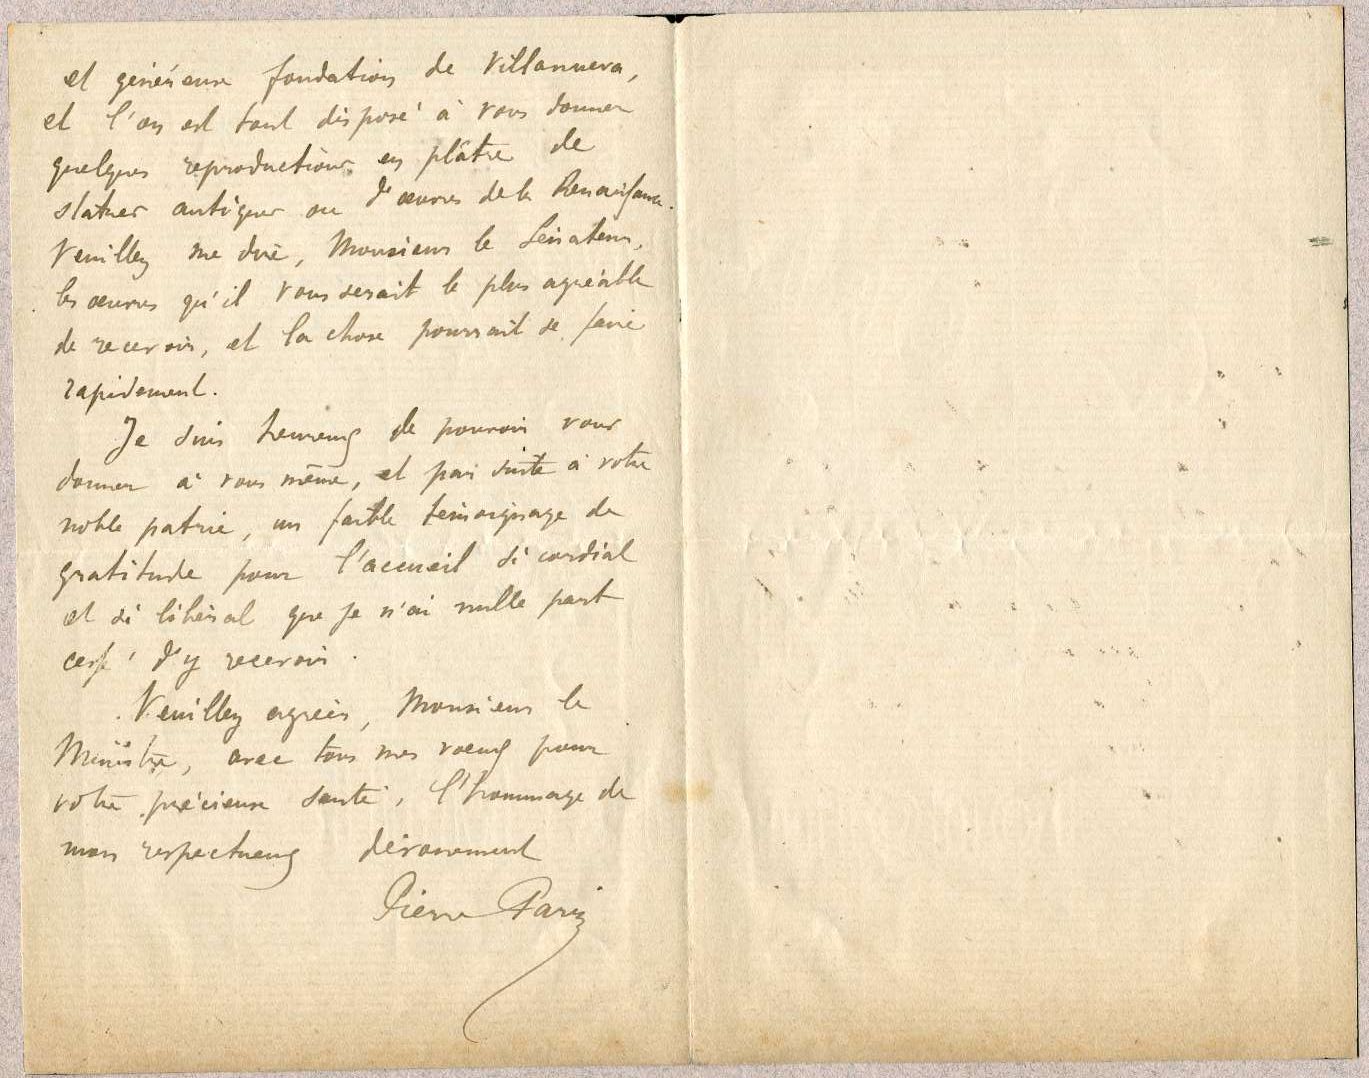 et généreuse fondation de Villanueva,
et l'on est tout disposé à vous donner
quelques reproductions en plâtre de
statues antiques ou d'œuvres de la Renaissance.
Veuillez me dire, Monsieur le Sénateur,
les œuvres qu'il vous serait le plus agréable
de recevoir, et la chose pourrait se faire
rapidement.
Je suis heureux de pouvoir vous
donner à vous même, et par suite à votre
noble patrie, un faible témoignage de
gratitude pour l'accueil si cordial
et si libéral que je n'ai nulle part
cessé d'y recevoir.
Veuillez agréer, Monsieur le
Ministre, avec tous mes vœux pour
votre précieuse santé, l'hommage de
mon respectueux dévouement
Pierre Paris